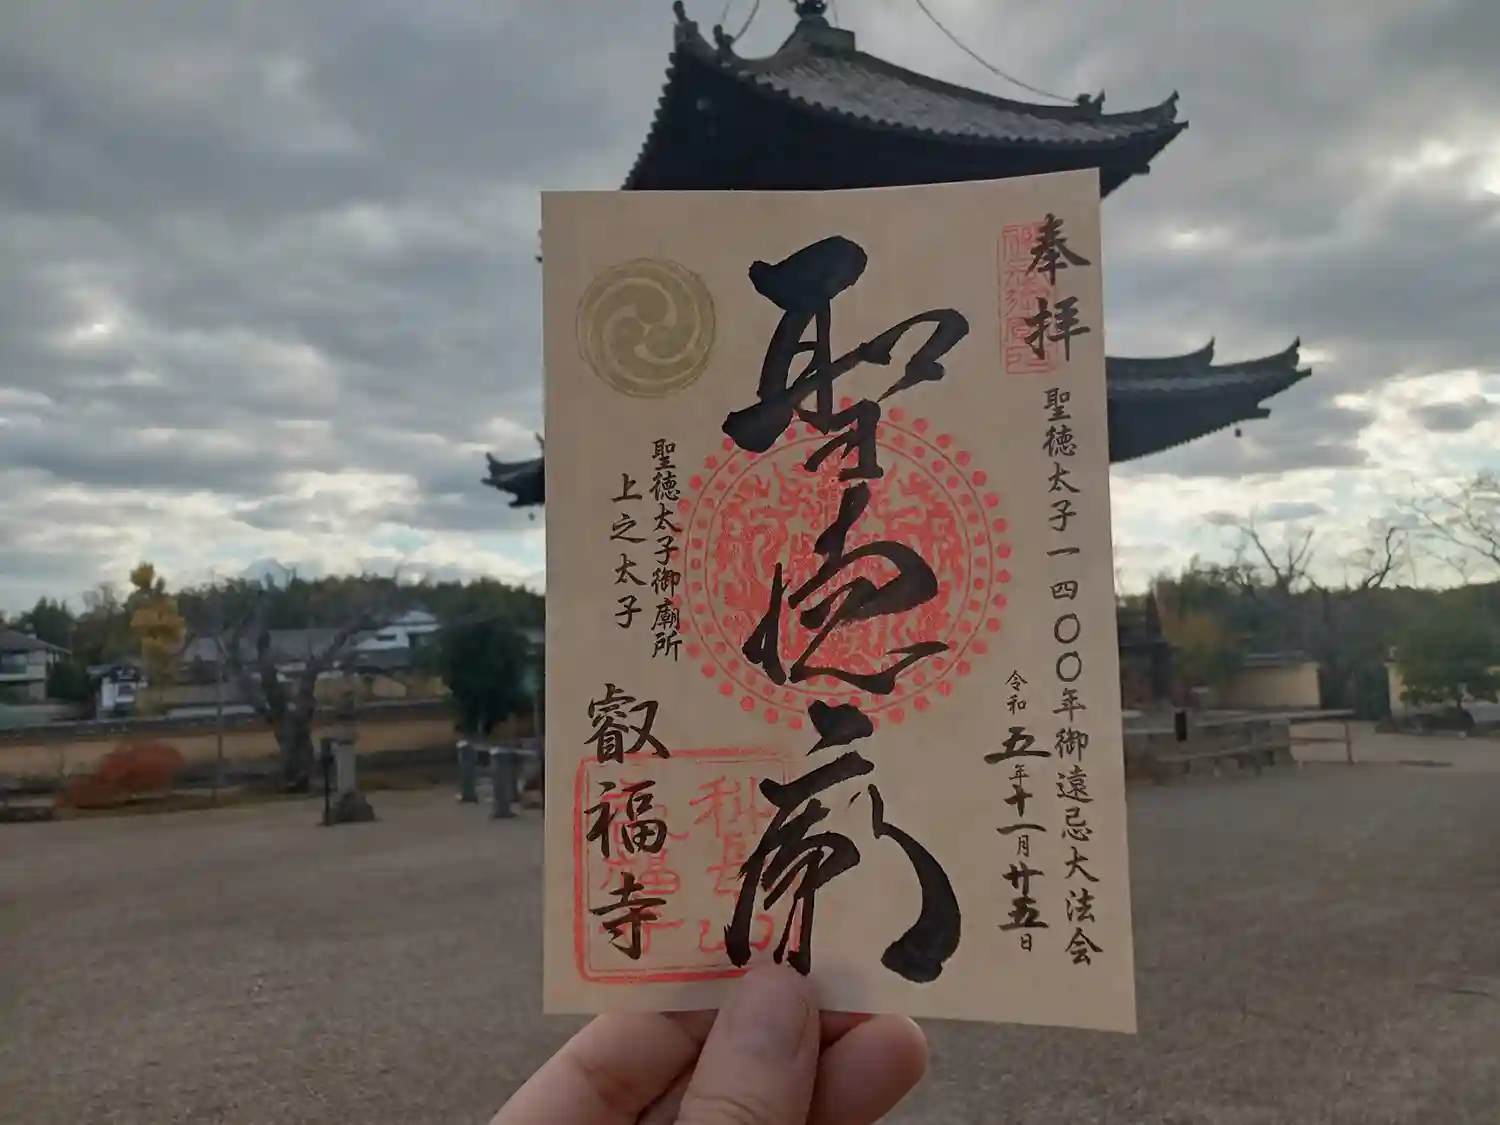 奉拝
聖徳太子一四〇〇年御遠忌大法会
令和五年十一月廿五日
聖徳廟
聖徳太子御廟所
上之太子
叡福寺